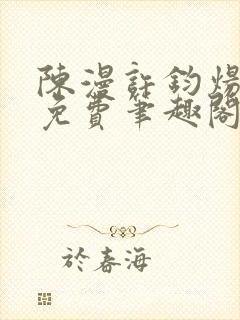 陳漫許鈞煬
免費筆趣閣
於春海